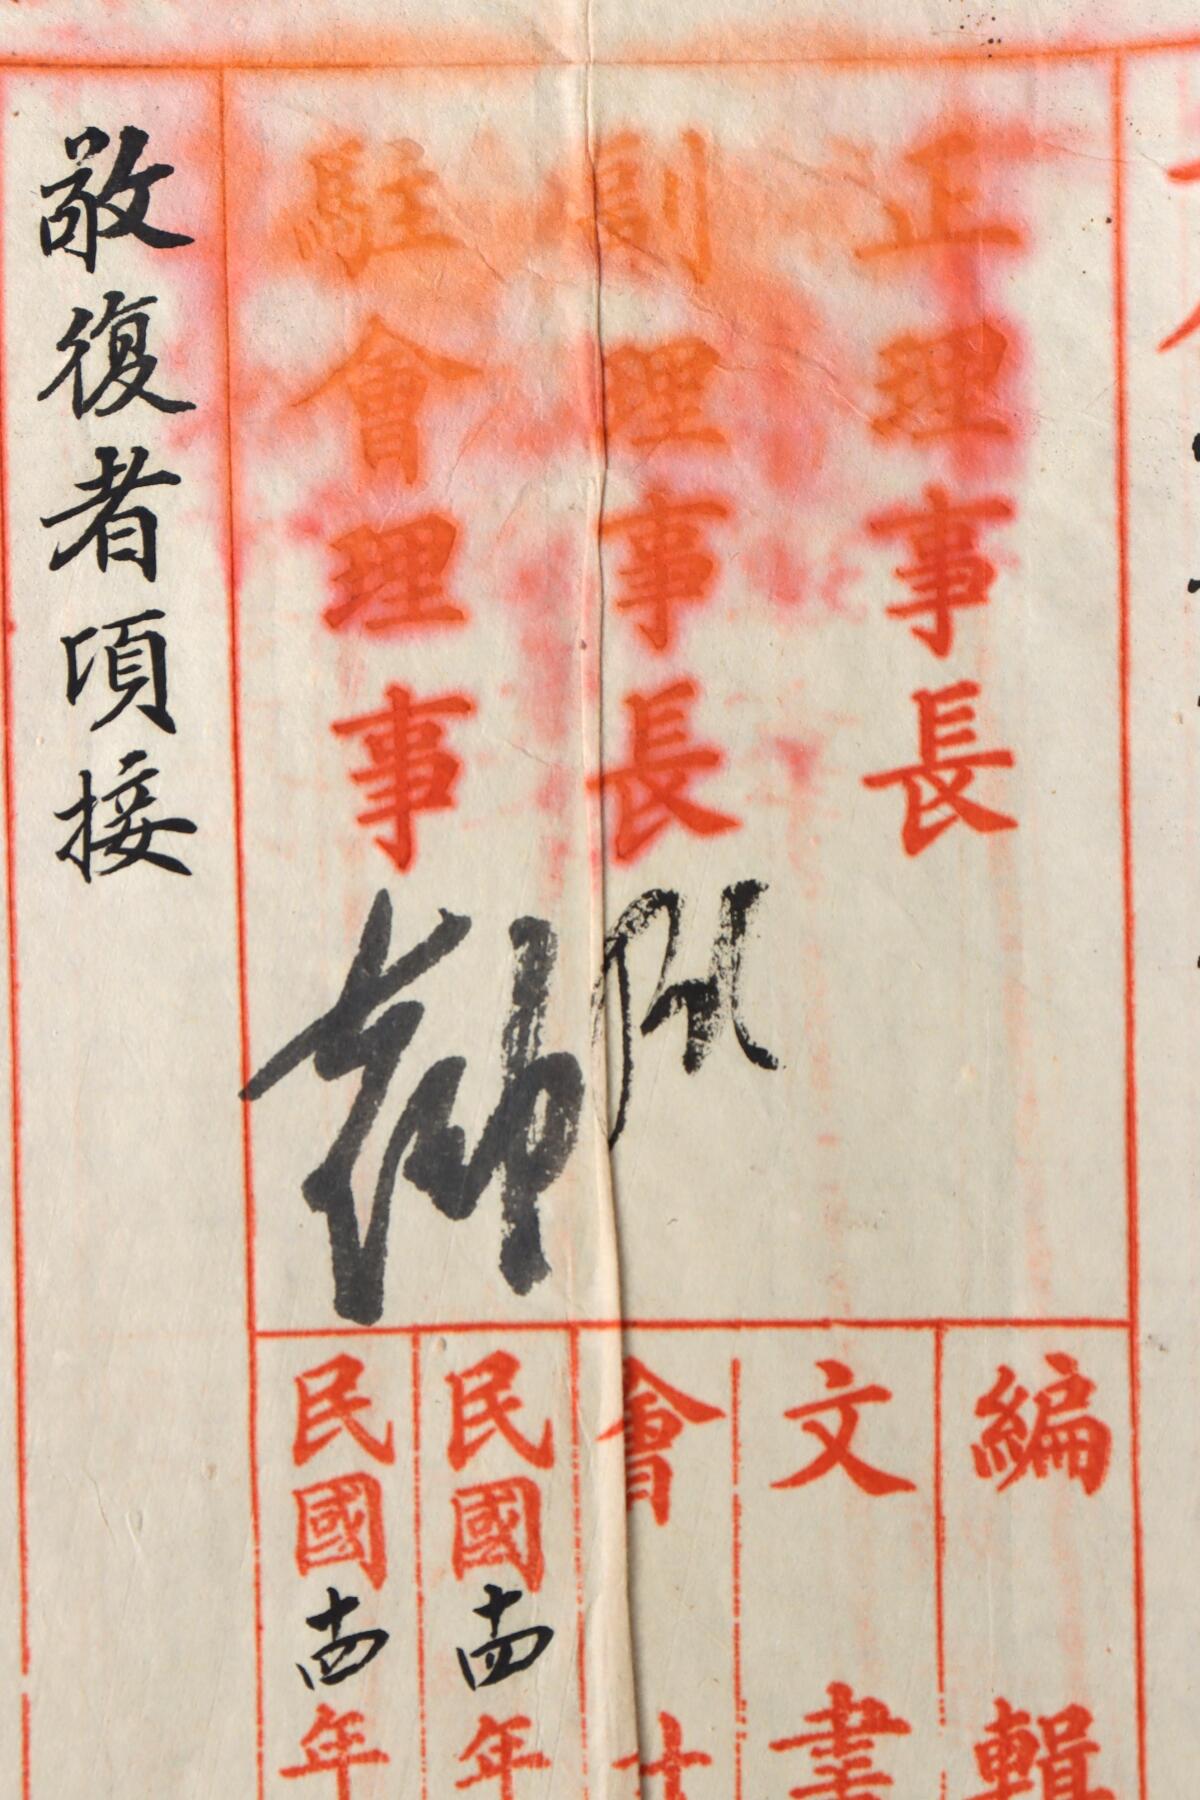 正理事長
副理事長
駐會理事
編輯
文書
會
民國十四年
民國十四年
敬復者頃接